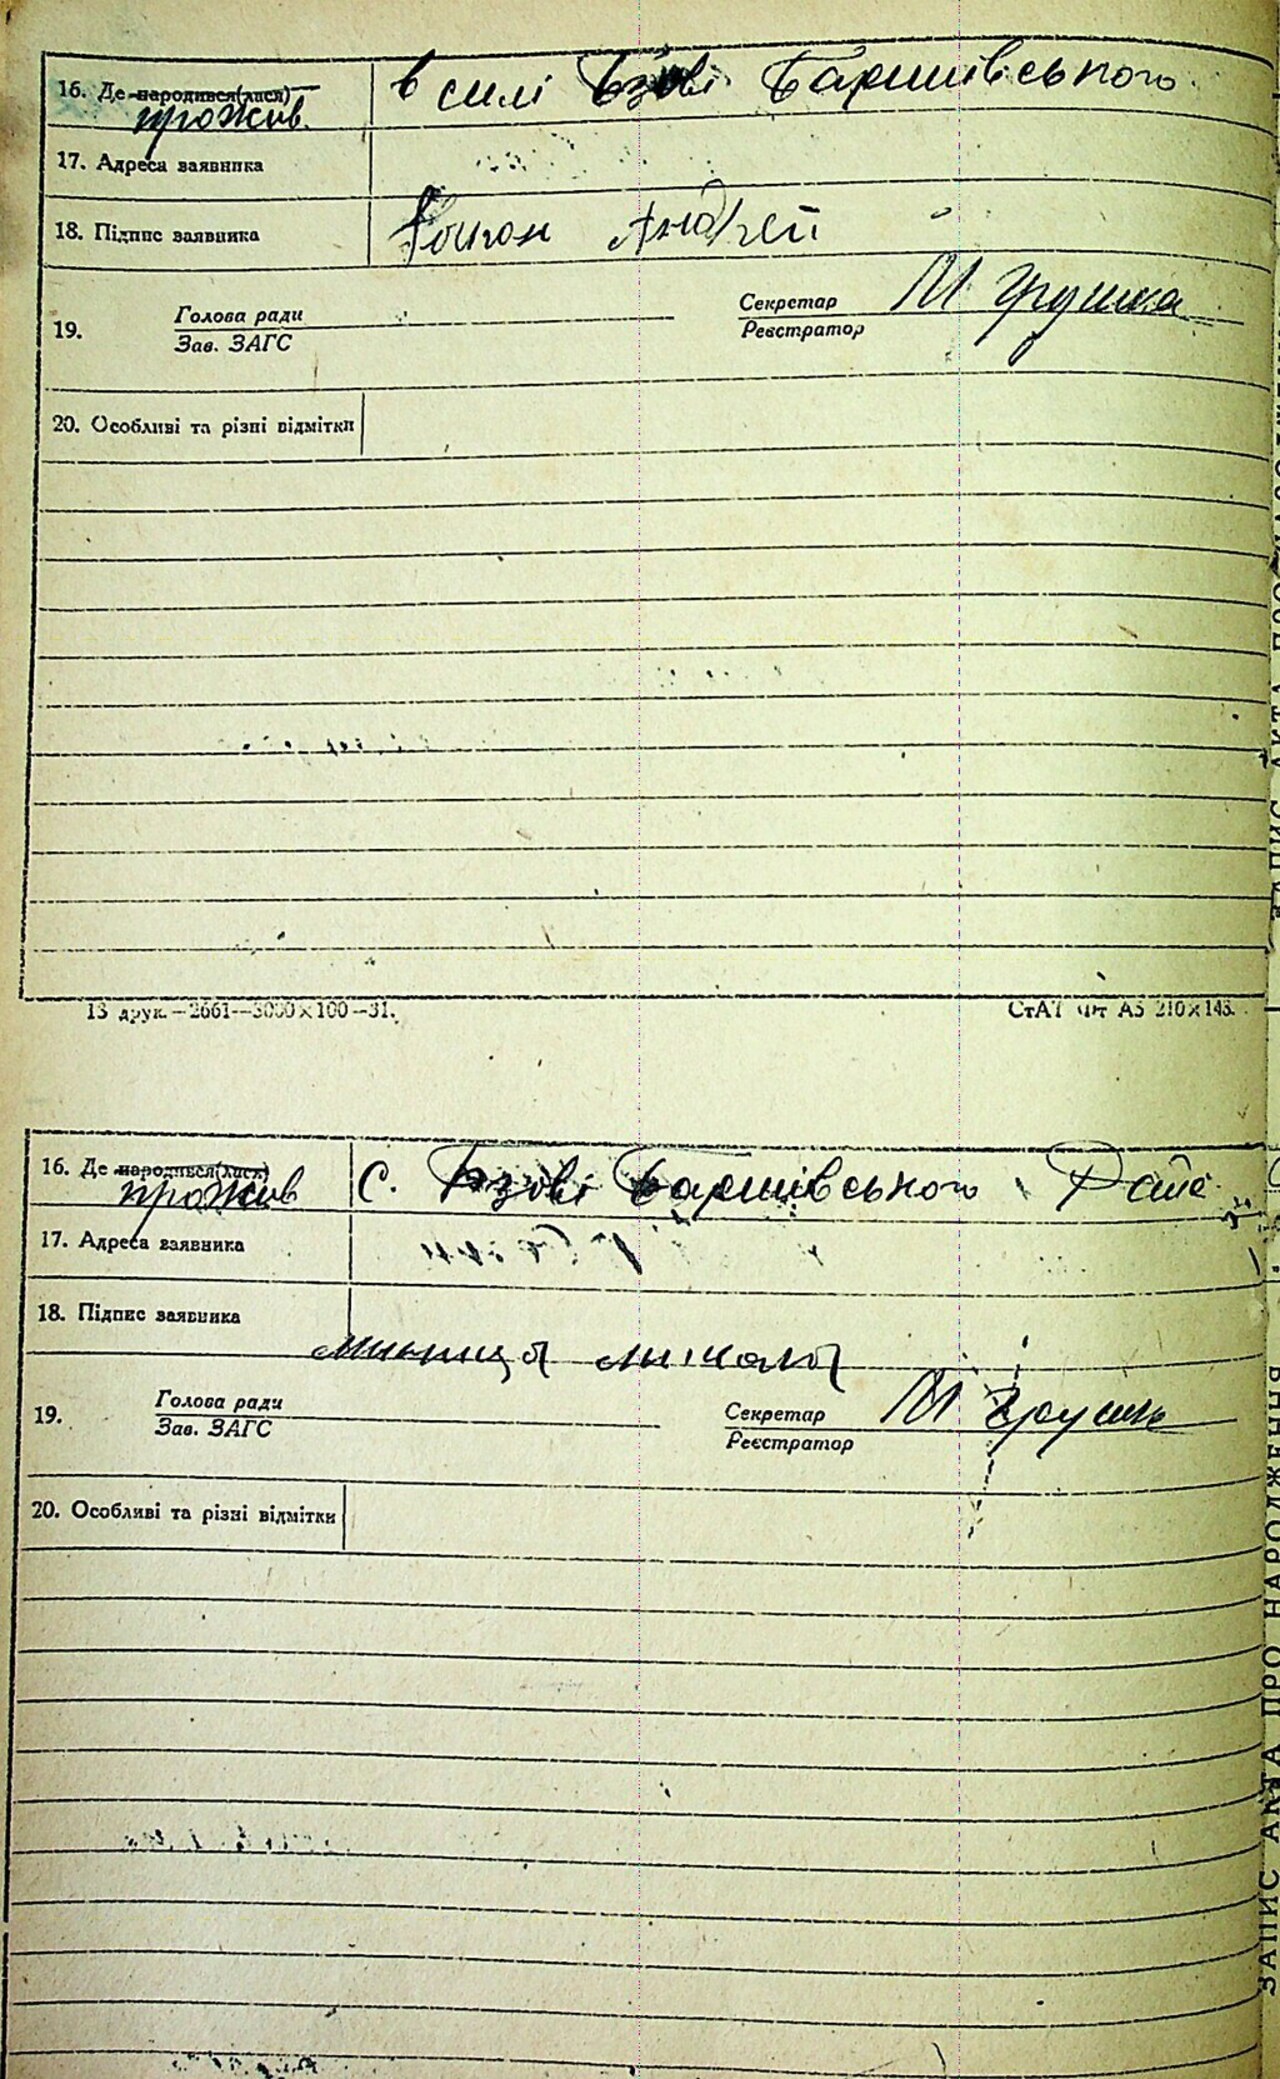 16. Де народився(лася) в силі Бзові Баришівського
прожив.
17. Адреса заявника
18. Підпис заявника Андрей
Голова ради Секретар М Грушка
19. Зав. ЗАГС Реєстратор
20. Особливі та різні відмітки
13 друк.—2661—3000×100—31. А5 210×148.
16. Де народився(лася) С. Бзові Баришівського
прожив
17. Адреса заявника
18. Підпис заявника
Голова ради Секретар М
19. Зав. ЗАГС Реєстратор
20. Особливі та різні відмітки
ЗАПИС АКТА ПРО НАРОДЖЕННЯ